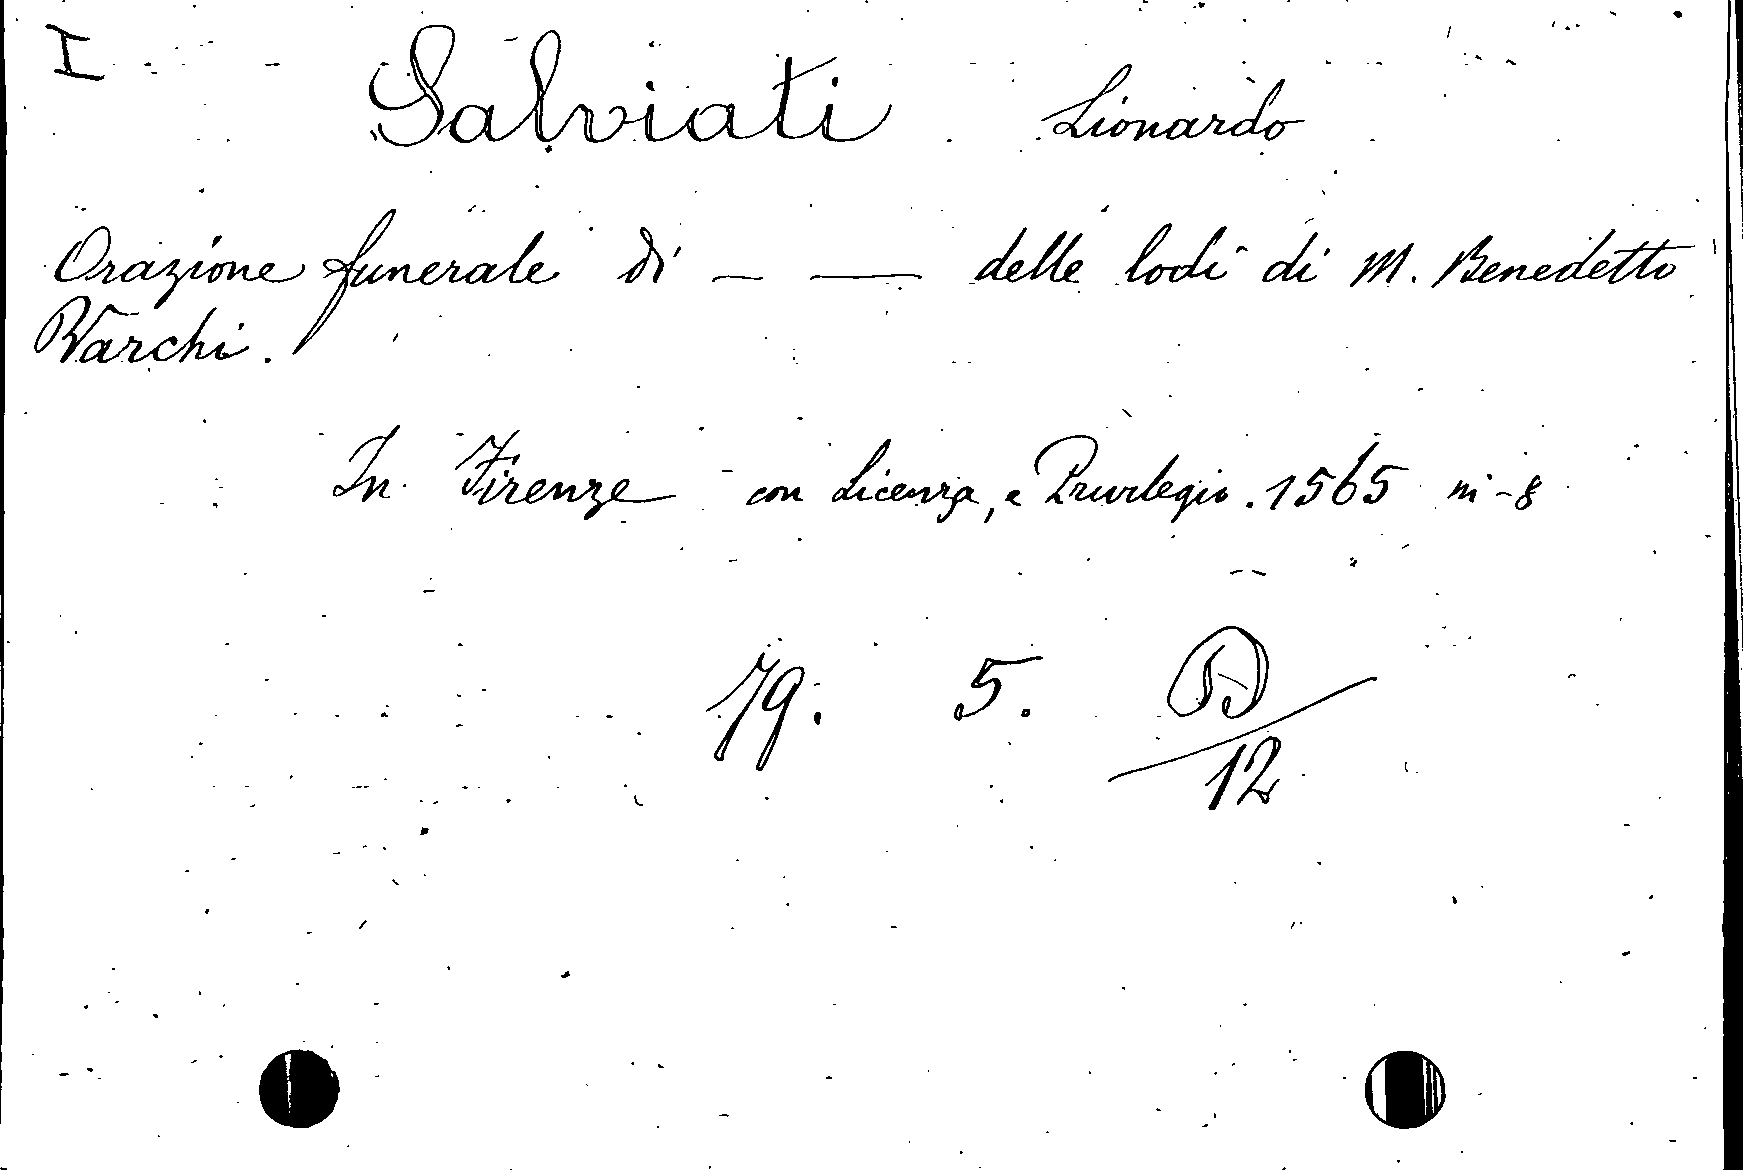 I
Salviati Lionardo
Orazione funerale di — — delle lodi di M. Benedetto
Varchi.
In Firenze con Licenza, e Privilegio. 1565 in-8
79. 5. D/12